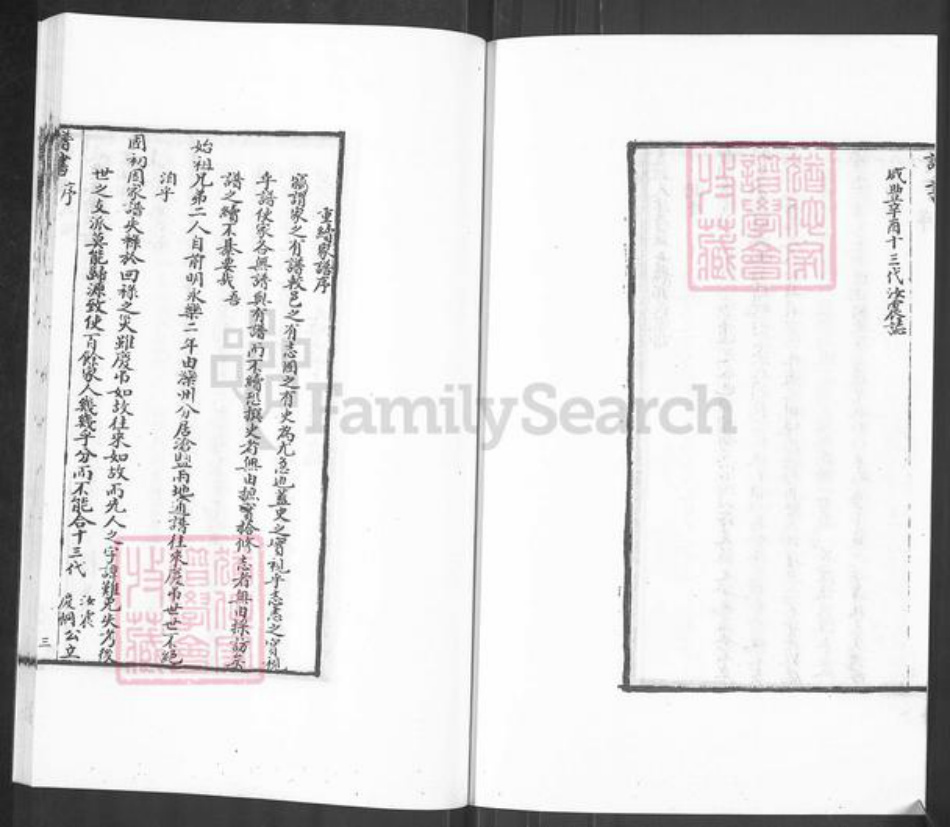 咸豐辛酉十三代汝震誌
重續家譜序
竊謂家之有譜教邑之有志國之有史為尤急也蓋史之實視乎志志之實視
乎譜使家各無譜與有譜而不續恐撰史者無由摭實拾修志者無由採訪矣
譜之續不綦要哉吾
始祖兄弟二人自前明永樂二年由灤州分居滄鹽兩地通譜往來慶弔世世不絕
洎乎
國初因家譜失稱於回祿之災雖慶弔如故往來如故而先人之字諱難免失考後
世之支派莫能歸源致使百餘家人幾幾乎分而不能合十三代
汝震
慶桐公立
譜書
序
三
猶他家譜學會收藏
猶他家譜學會收藏
FamilySearch